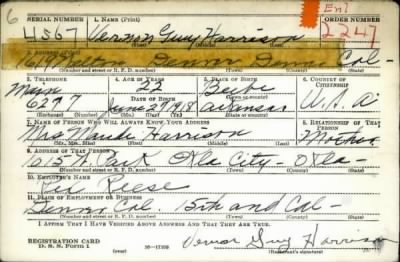 6 Enl
SERIAL NUMBER 1. NAME (Print) ORDER NUMBER
4567 Vernon Guy Harrison 2247
(First) (Middle) (Last)
2. ADDRESS (Print)
Denver Denver Col-
(Number and street or R. F. D. number) (Town) (County) (State)
3. TELEPHONE 4. AGE IN YEARS 5. PLACE OF BIRTH 6. COUNTRY OF CITIZENSHIP
Main 22 Beebe
6297 DATE OF BIRTH (Town or county)
June 27 1918 Arkansas U.S.A
(Exchange) (Number) (Mo.) (Day) (Yr.) (State or country)
7. NAME OF PERSON WHO WILL ALWAYS KNOW YOUR ADDRESS 8. RELATIONSHIP OF THAT PERSON
Mrs Maude Harrison Mother
(Mr., Mrs., Miss) (First) (Middle) (Last)
9. ADDRESS OF THAT PERSON
1015 N. Park Okla City - Okla -
(Number and street or R. F. D. number) (Town) (County) (State)
10. EMPLOYER'S NAME
Reese
11. PLACE OF EMPLOYMENT OR BUSINESS
Denver Col 15th and Cal -
(Number and street or R. F. D. number) (Town) (County) (State)
I AFFIRM THAT I HAVE VERIFIED ABOVE ANSWERS AND THAT THEY ARE TRUE.
REGISTRATION CARD
D. S. S. Form 1 16-17105 Vernon Guy Harrison
(Registrant's signature)